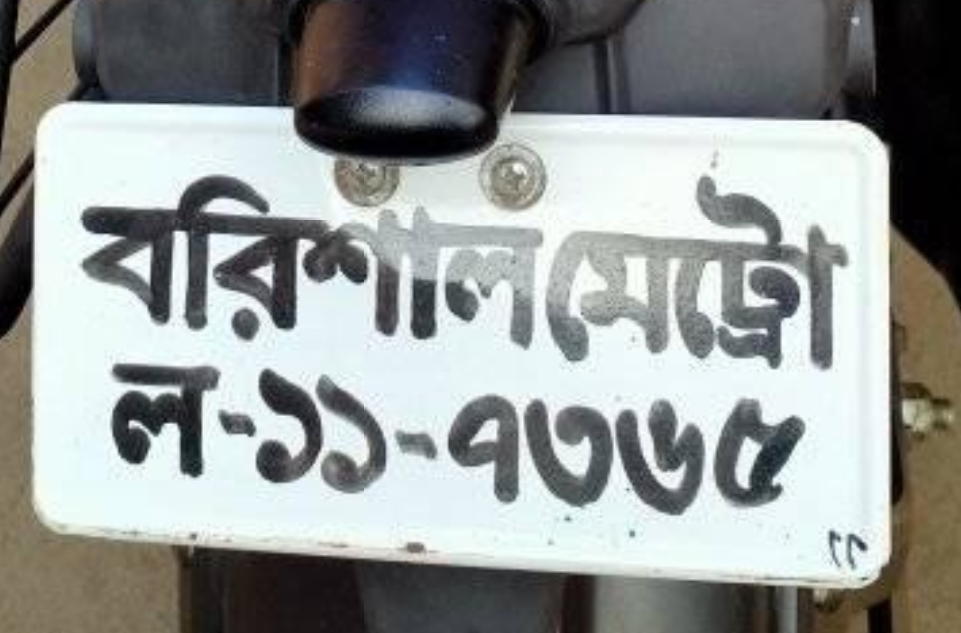 বরিশাল মেট্রো
ল-১১-৭৩৬৫